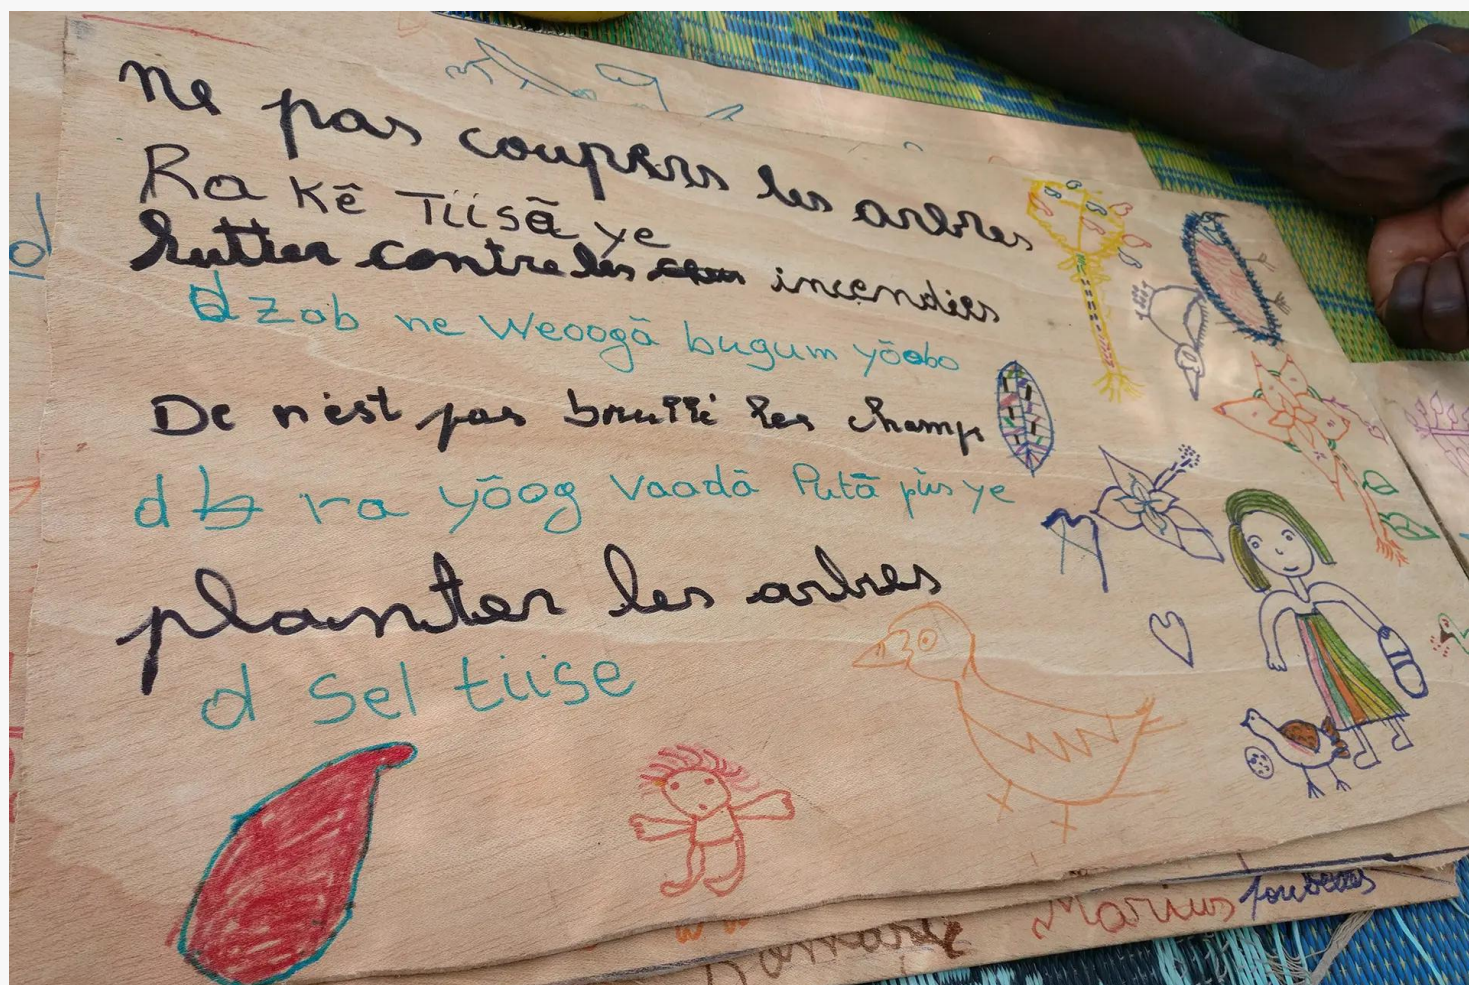 Ne pas coupers les arbres
Ra Kẽ Tiisã ye
Lutter contre les incendies
d zab ne Weoogã bugum yõobo
De n'est pas brullé les champs
d ra yõog Vaadã Putã pʋs ye
planter les arbres
d Sel tiise
Marius